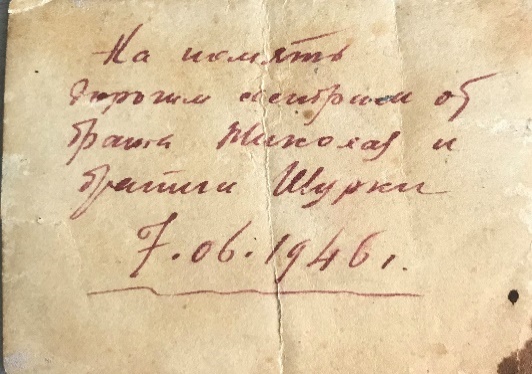 На память
дорогим сестрам от
брата Николая и
братиш Шурки
7.06.1946 г.